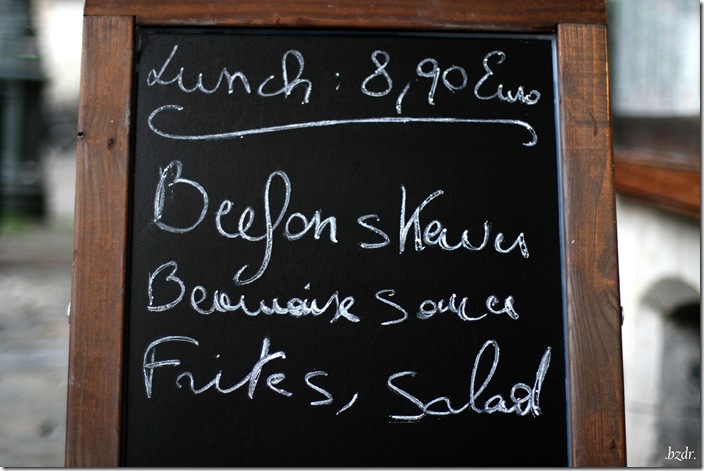 Lunch : 8,90 Euro
Beef on skewer
Bearnaise Sauce
Frites, Salad
.bzdr.